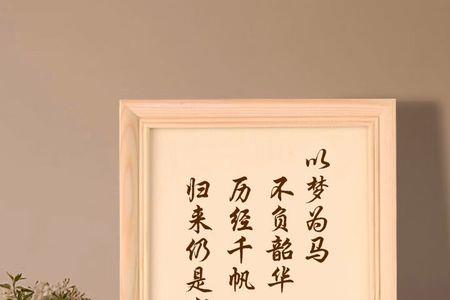 以梦为马
不负韶华
历经千帆
归来仍是